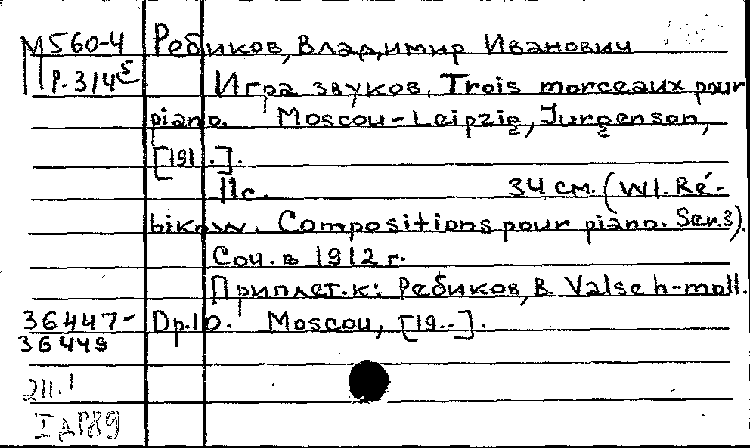 М560-4 Ребиков, Владимир Иванович
Р.314
Игра звуков. Trois morceaux pour
piano. Moscou-Leipzig, Jurgenson,
[191.].
11с. 34 см. (Wl. Ré-
bikow. Compositions pour piano. Ser.3).
Соч. в 1912 г.
Приплет. к: Ребиков, В. Valse h-moll.
36447- Op.10. Moscou, [19..].
36449
211.1